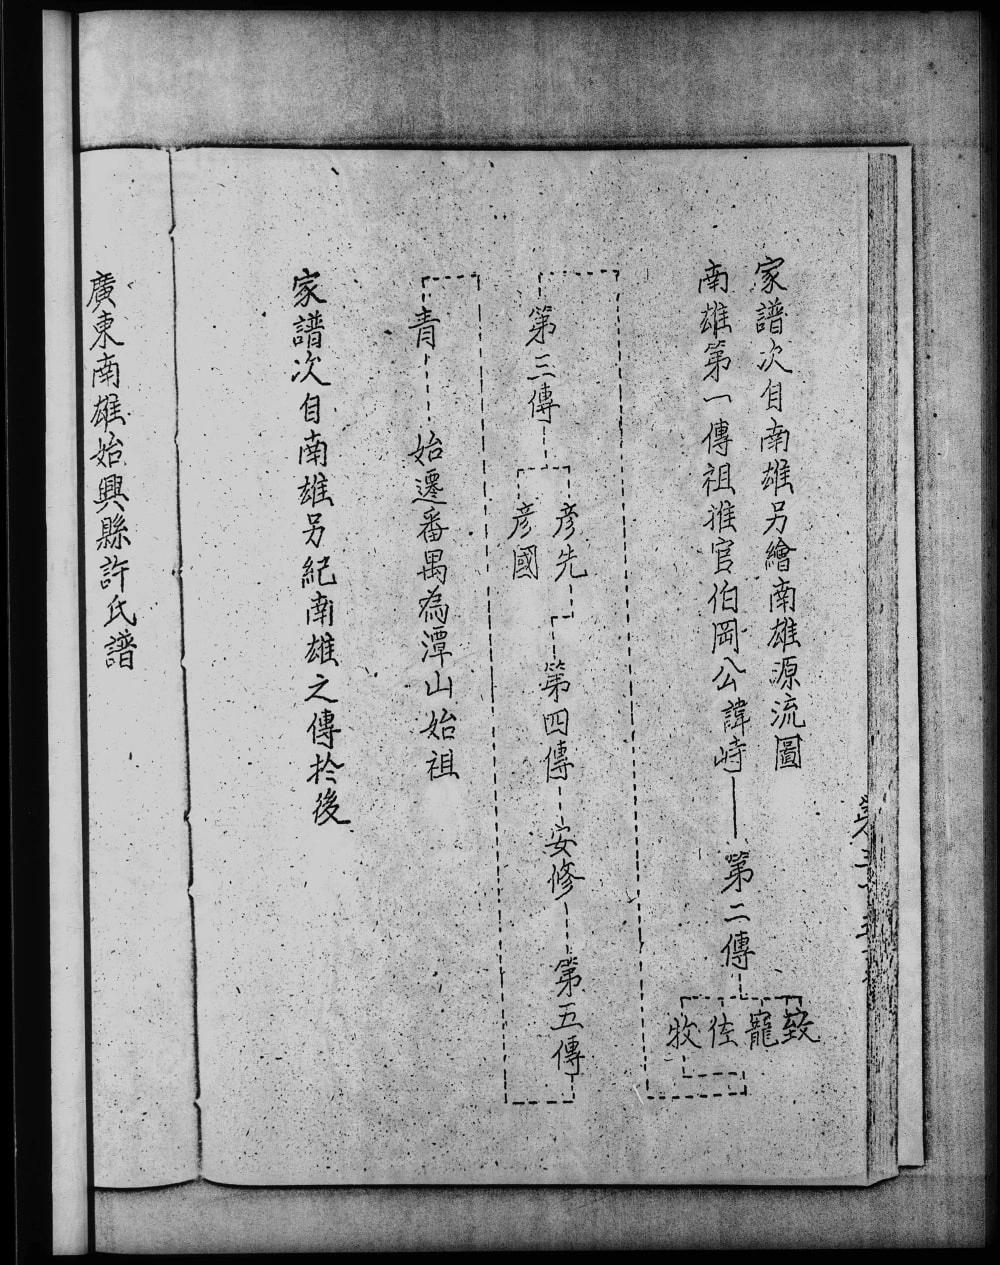 家譜次自南雄另繪南雄源流圖
南雄第一傳祖推官伯岡公諱峙
第二傳
致
寵
佐
牧
第三傳
彦先
彦國
第四傳
安修
第五傳
青
始遷番禺為潭山始祖
家譜次自南雄另紀南雄之傳於後
廣東南雄始興縣許氏譜